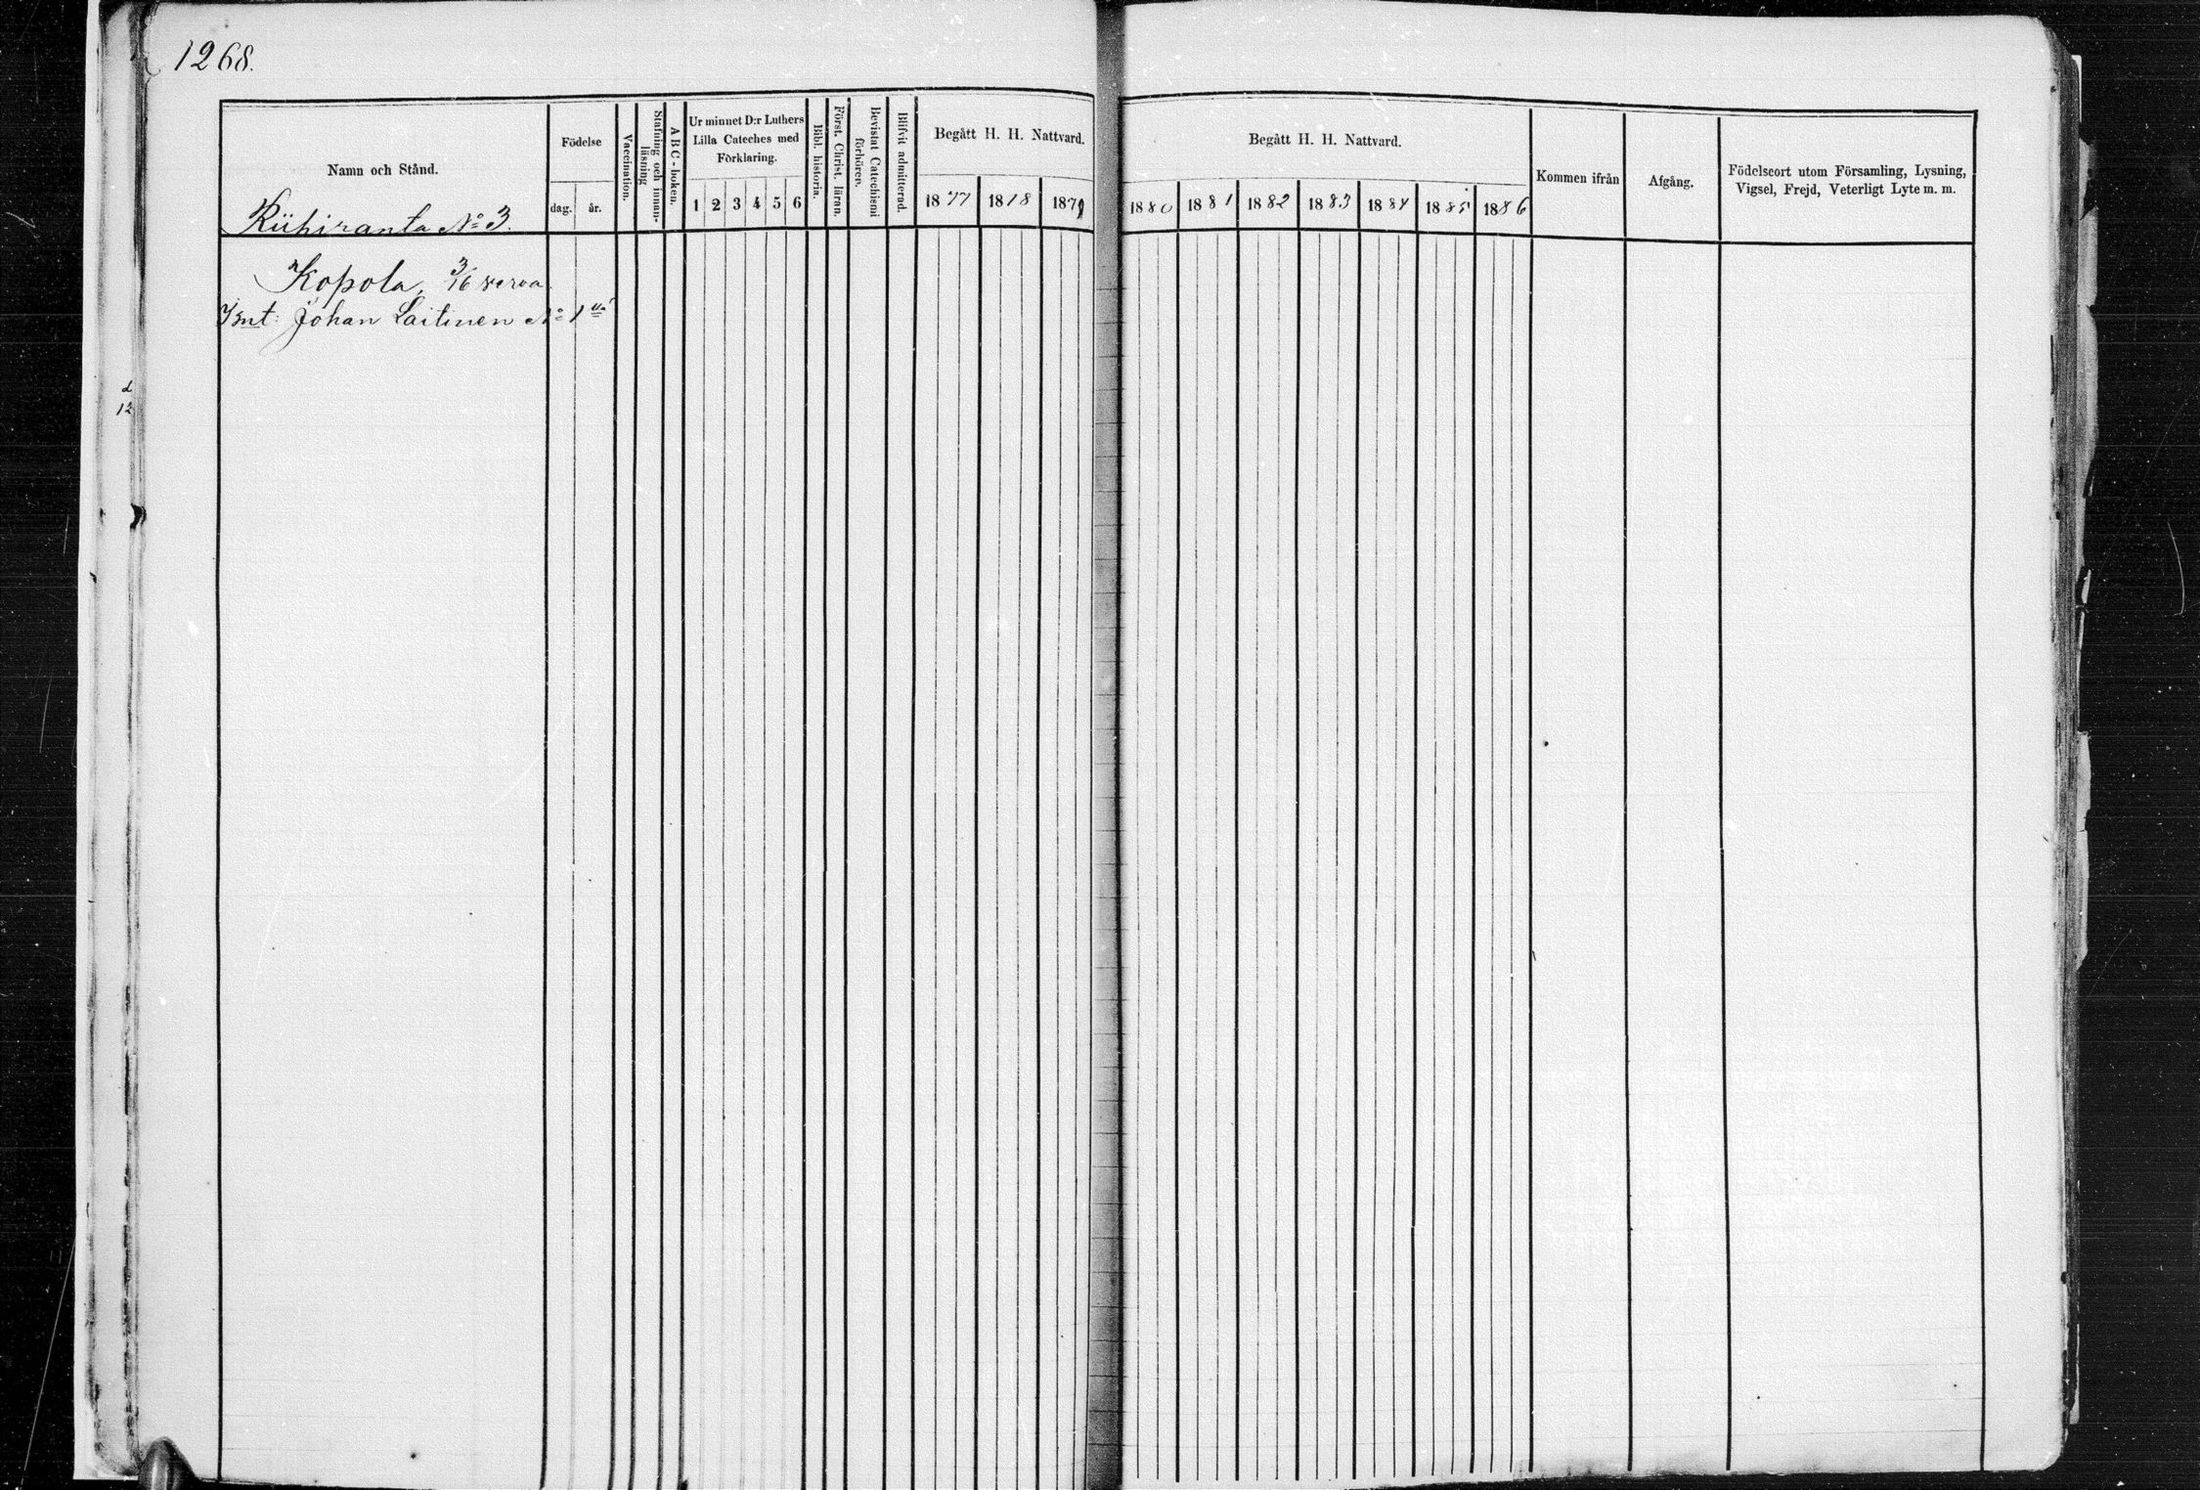 1268.
Namn och Stånd.
Födelse
dag.
år.
Vaccination.
Stafning och innan-
läsning
ABC-boken.
Ur minnet D:r Luthers
Lilla Cateches med
Förklaring.
1 2 3 4 5 6
Bibl. historia.
Först. Christ. läran.
Bevistat Catechismi
förhören.
Blifvit admitterad.
Begått H. H. Nattvard.
1877 1878 1879
Begått H. H. Nattvard.
1880 1881 1882 1883 1884 1885 1886
Kommen ifrån
Afgång.
Födelseort utom Församling, Lysning,
Vigsel, Frejd, Veterligt Lyte m. m.
Riihiranta No 3.
Kopola, 3/16
Johan Laitinen No 1
d
12